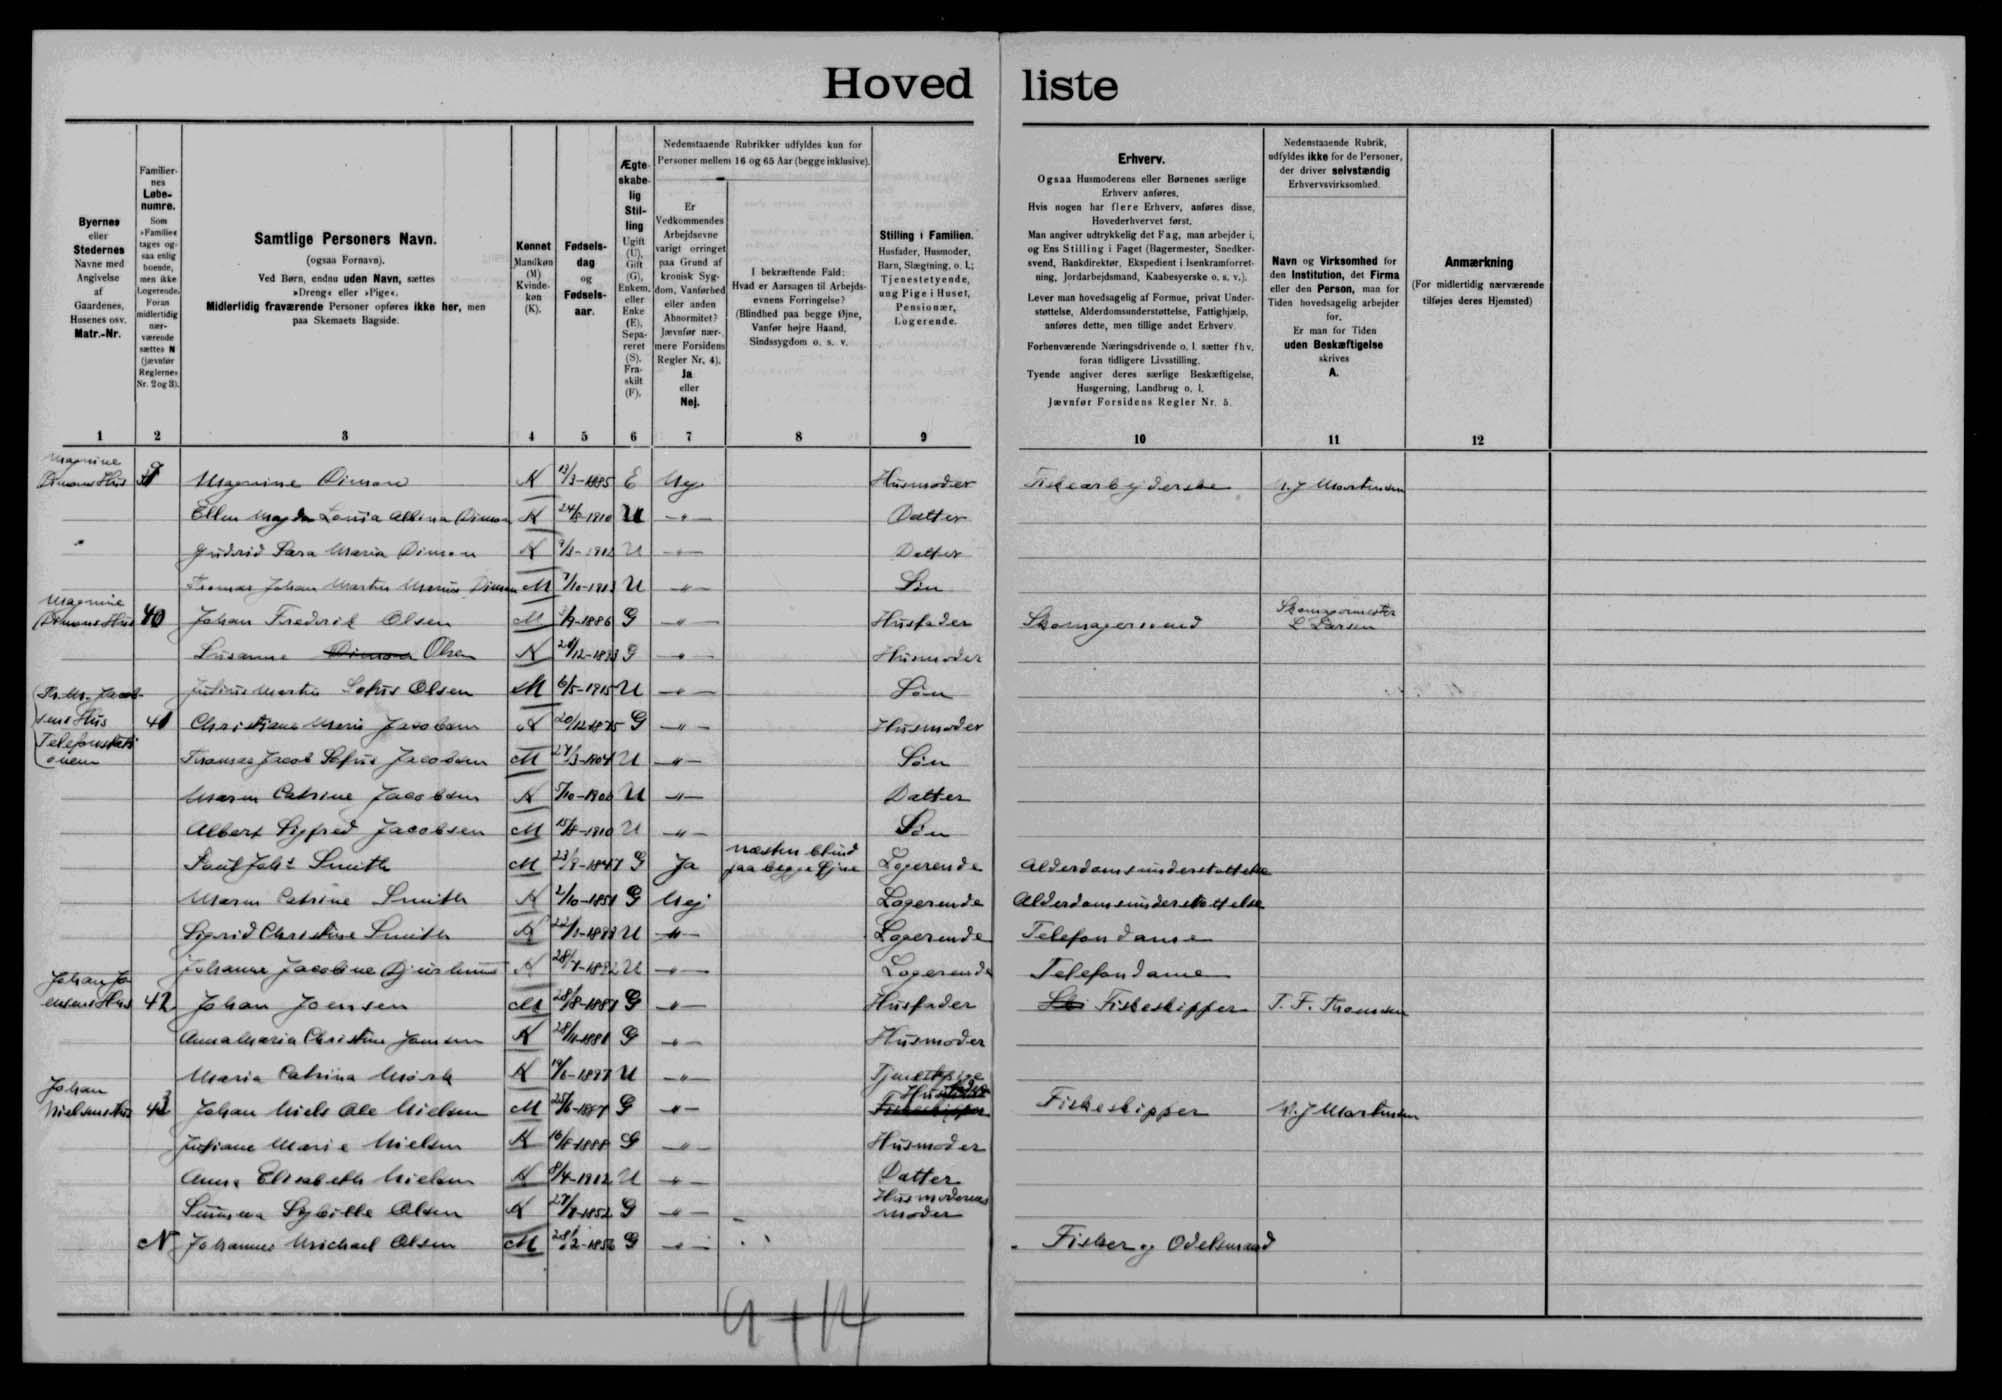 Hoved liste
Byernes
eller
Stedernes
Navne med
Angivelse
af
Gaardenes,
Husenes osv.
Matr.-Nr.
Familier-
nes
Løbe-
numre.
Som
»Familie«
tages og-
saa enlig
boende,
men ikke
Logerende.
Foran
midlertidig
nær-
værende
sættes N
(jævnfør
Reglernes
Nr. 2 og 3).
Samtlige Personers Navn.
(ogsaa Fornavn).
Ved Børn, endnu uden Navn, sættes
»Dreng« eller »Pige«.
Midlertidig fraværende Personer opføres ikke her, men
paa Skemaets Bagside.
Kønnet
Mandkøn
(M)
Kvinde-
køn
(K).
Fødsels-
dag
og
Fødsels-
aar.
Ægte-
skabe-
lig
Stil-
ling
Ugift
(U),
Gift
(G),
Enkem.
eller
Enke
(E),
Sepa-
reret
(S).
Fra-
skilt
(F).
Nedenstaaende Rubrikker udfyldes kun for
Personer mellem 16 og 65 Aar (begge inklusive).
Er
Vedkommendes
Arbejdsevne
varigt orringet
paa Grund af
kronisk Syg-
dom, Vanførhed
eller anden
Abnormitet?
Jævnfør nær-
mere Forsidens
Regler Nr. 4).
Ja
eller
Nej.
I bekræftende Fald:
Hvad er Aarsagen til Arbejds-
evnens Forringelse?
(Blindhed paa begge Øjne,
Vanfør højre Haand,
Sindssygdom o. s. v.
Stilling i Familien.
Husfader, Husmoder,
Barn, Slægtning, o. l.;
Tjenestetyende,
ung Pige i Huset,
Pensionær,
Logerende.
Erhverv.
Ogsaa Husmoderens eller Børnenes særlige
Erhverv anføres.
Hvis nogen har flere Erhverv, anføres disse,
Hovederhvervet først.
Man angiver udtrykkelig det Fag, man arbejder i,
og Ens Stilling i Faget (Bagermester, Snedker-
svend, Bankdirektør, Ekspedient i Isenkramforret-
ning, Jordarbejdsmand, Kaabesyerske o. s. v.).
Lever man hovedsagelig af Formue, privat Under-
støttelse, Alderdomsunderstøttelse, Fattighjælp,
anføres dette, men tillige andet Erhverv.
Forhenværende Næringsdrivende o. l. sætter fhv.
foran tidligere Livsstilling.
Tyende angiver deres særlige Beskæftigelse,
Husgerning, Landbrug o. l.
Jævnfør Forsidens Regler Nr. 5.
Nedenstaaende Rubrik,
udfyldes ikke for de Personer,
der driver selvstændig
Erhvervsvirksomhed.
Navn og Virksomhed for
den Institution, det Firma
eller den Person, man for
Tiden hovedsagelig arbejder
for.
Er man for Tiden
uden Beskæftigelse
skrives
A.
Anmærkning
(For midlertidig nærværende
tilføjes deres Hjemsted)
1 2 3 4 5 6 7 8 9 10 11 12
Magnine
Dimons Hus Magnine Dimon K E Nej Husmoder Fiskearbejderske Mortensen
Ellen Magda Lovisa Albina Dimon K 24/8-1910 U -"- Datter
Gudrid Sara Maria Dimon K U -"- Datter
Tromas Johan Martin Marius Dimon M 7/10-1913 U -"- Søn
Magnine
Dimons Hus 40 Johan Frederik Olsen M G -"- Husfader Skomagersvend Skomagermester
L Larsen
Susanne Dimon Olsen K G -"- Husmoder
Julius Martin Sofus Olsen M 6/5-1915 U -"- Søn
Jacob-
sens Hus 41 Christiane Marie Jacobsen K 20/12-1875 G -"- Husmoder
Telefonstati
onen Tromas Jacob Sofus Jacobsen M U -"- Søn
Maren Catrine Jacobsen K U -"- Datter
Albert Sigfred Jacobsen M 15/8-1910 U -"- Søn
næsten blind
Smith M G Ja paa begge Øjne Logerende Alderdomsunderstøttelse
Maren Catrine Smith K 2/10-1851 G Nej Logerende Alderdomsunderstøttelse
Sigrid Christine Smith K U -"- Logerende Telefondame
Johanna Jacobine Djurhuus K U -"- Logerende Telefondame
Johan Jo
ensens Hus 42 Johan Joensen M G -"- Husfader Fiskeskipper T. F. Thomsen
Anna Maria Christine Joensen K G -"- Husmoder
Maria Catrina Mørk K U -"- Tjenestepige
Johan
Nielsens Hus 43 Johan Niels Ole Nielsen M G -"- Husfader Fiskeskipper Mortensen
Juliane Marie Nielsen K 16/8-1888 G -"- Husmoder
Anna Elisabeth Nielsen K 8/4-1912 U -"- Datter
Sunneva Sybille Olsen K G -"- Husmoderens
moder
N Johannes Michael Olsen M G -"- Fisker og Odelsmand
9+14